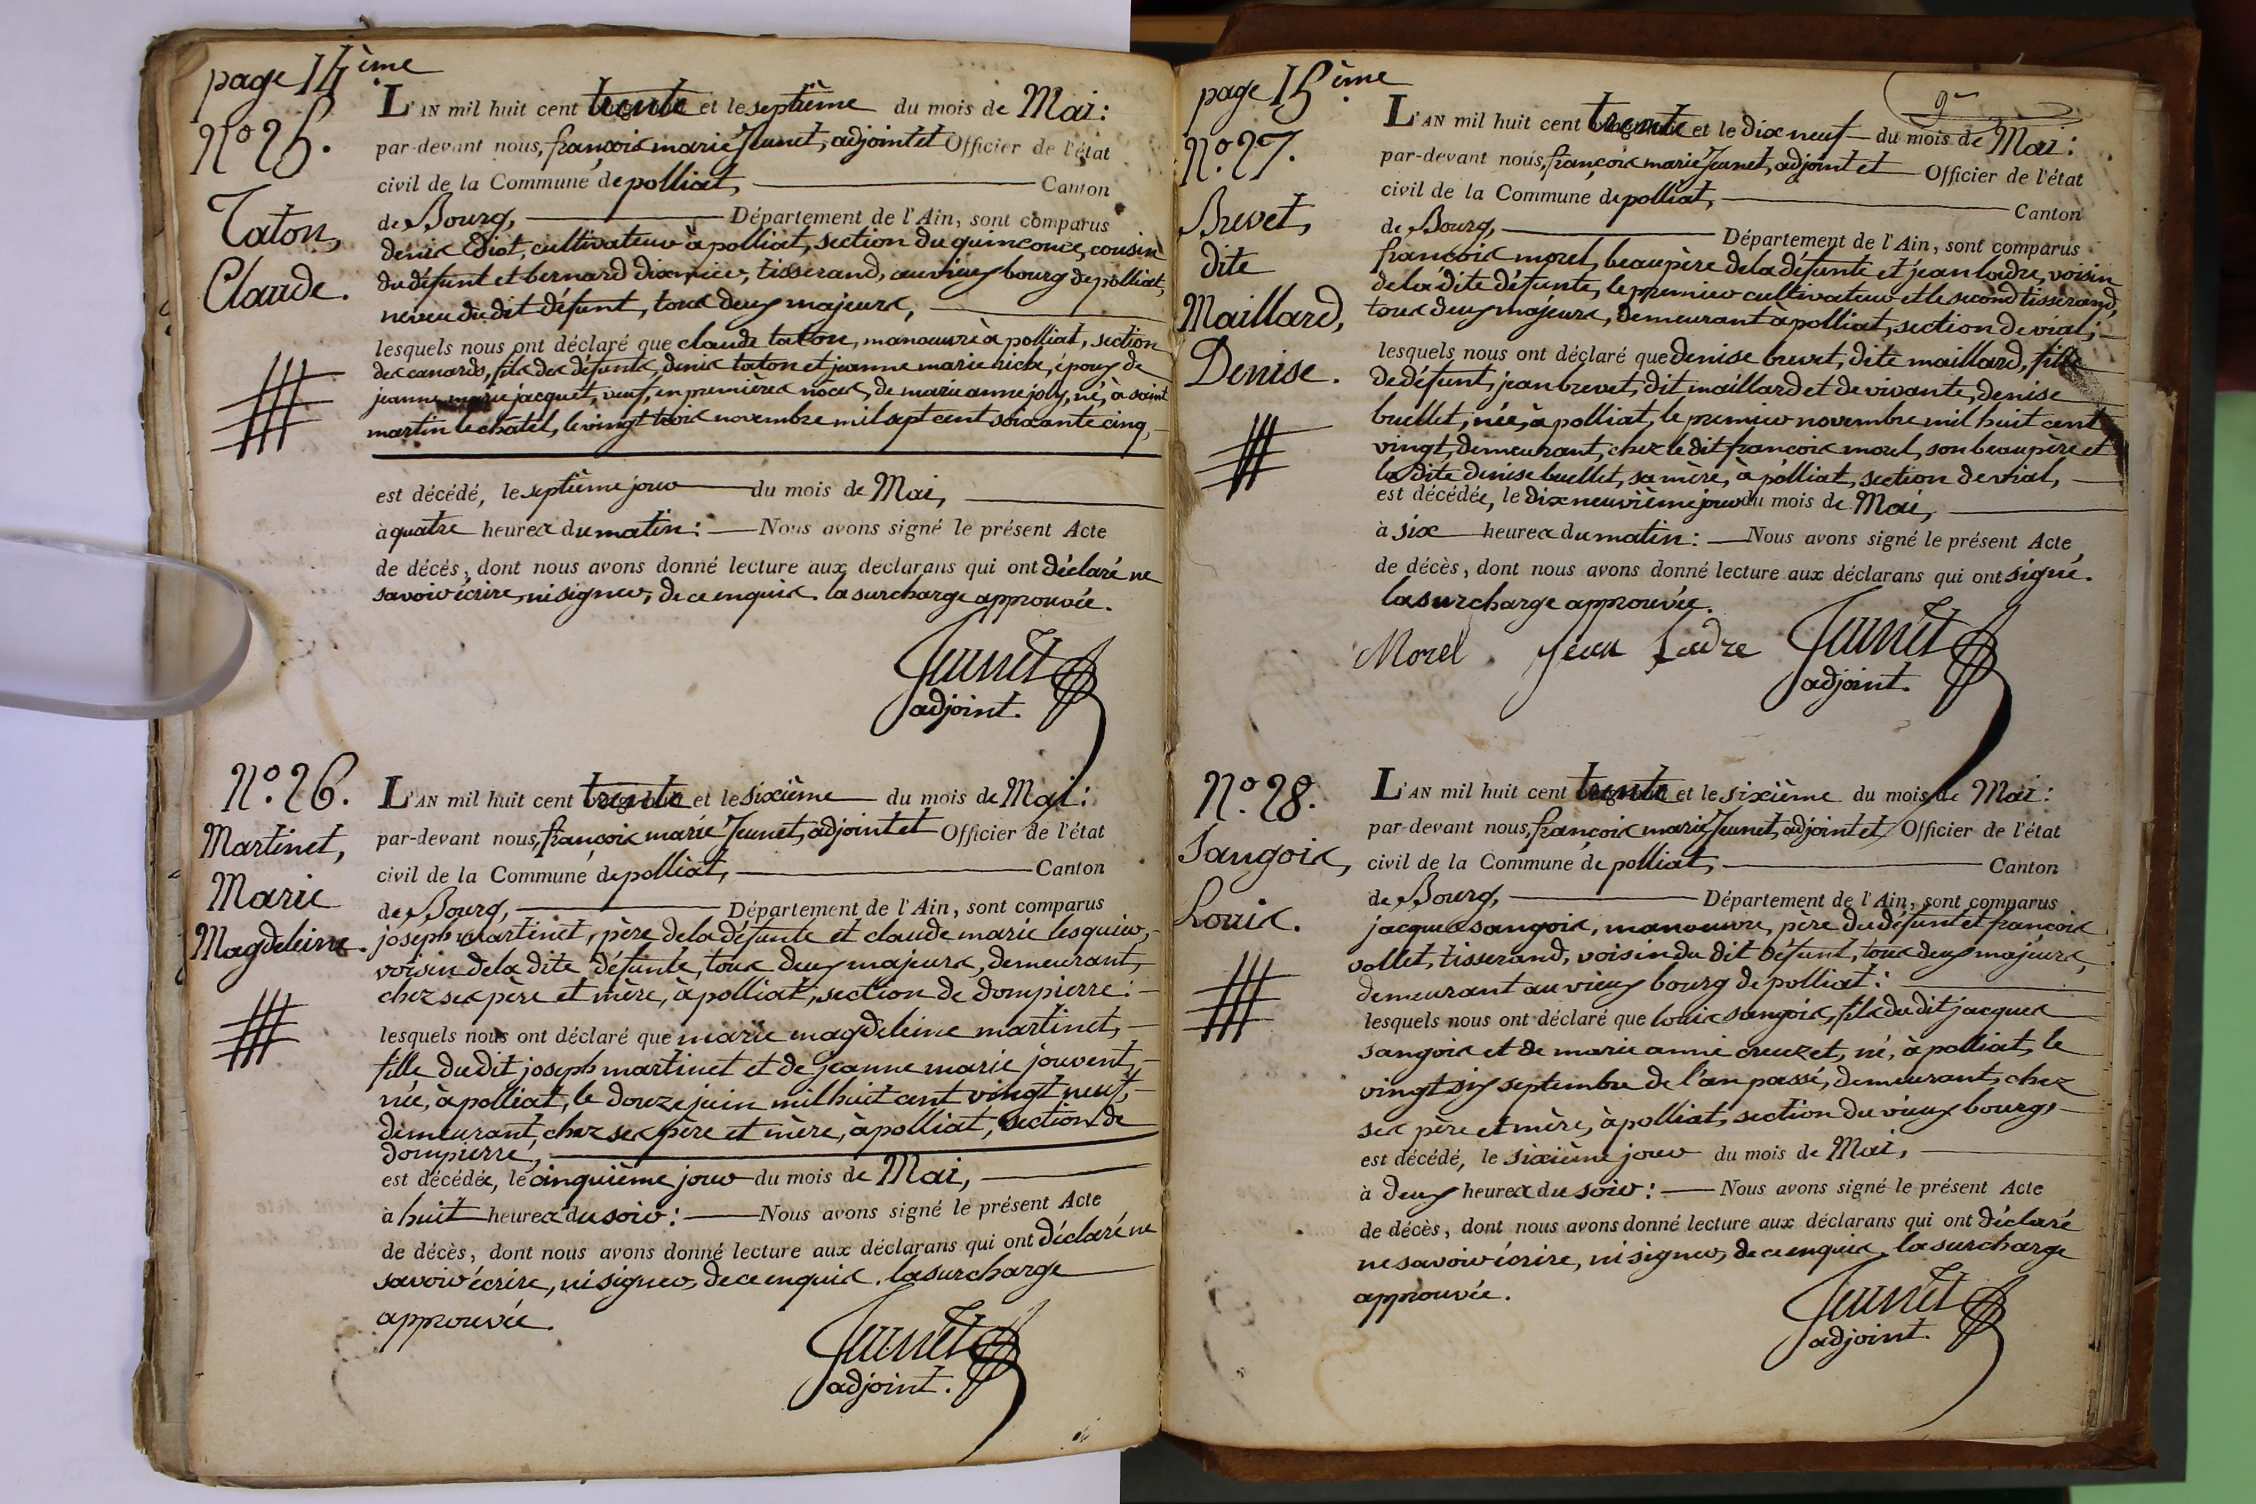 page 14ème
N° 25.
Taton,
Claude.
L'AN mil huit cent trente et le septième du mois de Mai:
par-devant nous, françois marie Jeunet, adjoint et Officier de l'état
civil de la Commune de polliat, Canton
de Bourg, Département de l'Ain, sont comparus
denis Diot, cultivateur à polliat, section du quinconce, cousin
du défunt et bernard dixmier, tisserand, au vieux bourg de polliat,
neveu du dit défunt, tous deux majeurs,
lesquels nous ont déclaré que claude taton, manoeuvre à polliat, section
des canards, fils des défunts, denis taton et jeanne marie riche, époux de
jeanne marie jacquet, veuf, en premières noces, de marie anne joly, né, à saint
martin le châtel, le vingt trois novembre mil sept cent soixante cinq,
est décédé, le septième jour du mois de Mai,
à quatre heures du matin: Nous avons signé le présent Acte
de décés, dont nous avons donné lecture aux declarans qui ont déclaré ne
savoir écrire, ni signer, de ce enquis. la surcharge approuvée.
Jeunet
adjoint.
N° 26.
Martinet,
Marie
Magdeleine.
L'AN mil huit cent trente et le sixième du mois de Mai:
par-devant nous, françois marie Jeunet, adjoint et Officier de l'état
civil de la Commune de polliat, Canton
de Bourg, Département de l'Ain, sont comparus
joseph martinet, père de la défunte et claude marie lesquier,
voisin de la dite défunte, tous deux majeurs, demeurant,
chez ses père et mère, à polliat, section de dompierre:
lesquels nous ont déclaré que marie magdeleine martinet,
fille du dit joseph martinet et de jeanne marie jouvent,
née, à polliat, le douze juin mil huit cent vingt neuf,
demeurant, chez ses père et mère, à polliat, section de
dompierre,
est décédée, le cinquième jour du mois de Mai,
à huit heures du soir: Nous avons signé le présent Acte
de décès, dont nous avons donné lecture aux déclarans qui ont déclaré ne
savoir écrire, ni signer, de ce enquis. la surcharge
approuvée.
Jeunet
adjoint.
page 15ème
9
N° 27.
Brevet,
dite
Maillard,
Denise.
L'AN mil huit cent trente et le dix neuf du mois de Mai:
par-devant nous, françois marie Jeunet, adjoint et Officier de l'état
civil de la Commune de polliat, Canton
de Bourg, Département de l'Ain, sont comparus
françois morel, beau père de la défunte et jean ladre, voisin
de la dite défunte, le premier cultivateur et le second tisserand,
tous deux majeurs, demeurant à polliat, section de vial;
lesquels nous ont déclaré que denise brevet, dite maillard, fille
de défunt, jean brevet, dit maillard et de vivante, denise
buellet, née, à polliat, le premier novembre mil huit cent
vingt, demeurant, chez le dit françois morel, son beau père et
la dite denise buellet, sa mère, à polliat, section de vial,
est décédée, le dix neuvième jour du mois de Mai,
à six heures du matin: Nous avons signé le présent Acte
de décès, dont nous avons donné lecture aux déclarans qui ont signé.
la surcharge approuvée.
Morel Jean Ladre Jeunet
adjoint.
N° 28.
Sangois,
Louis.
L'AN mil huit cent trente et le sixième du mois de Mai:
par-devant nous, françois marie Jeunet, adjoint et Officier de l'état
civil de la Commune de polliat, Canton
de Bourg, Département de l'Ain, sont comparus
jacques sangois, manoeuvre, père du défunt et françois
vollet, tisserand, voisin du dit défunt, tous deux majeurs,
demeurant au vieux bourg de polliat:
lesquels nous ont déclaré que louis sangois, fils du dit jacques
sangois et de marie anne creuzet, né, à polliat, le
vingt six septembre de l'an passé, demeurant, chez
ses père et mère, à polliat, section du vieux bourg,
est décédé, le sixième jour du mois de Mai,
à deux heures du soir: Nous avons signé le présent Acte
de décès, dont nous avons donné lecture aux déclarans qui ont déclaré
ne savoir écrire, ni signer, de ce enquis. la surcharge
approuvée.
Jeunet
adjoint.